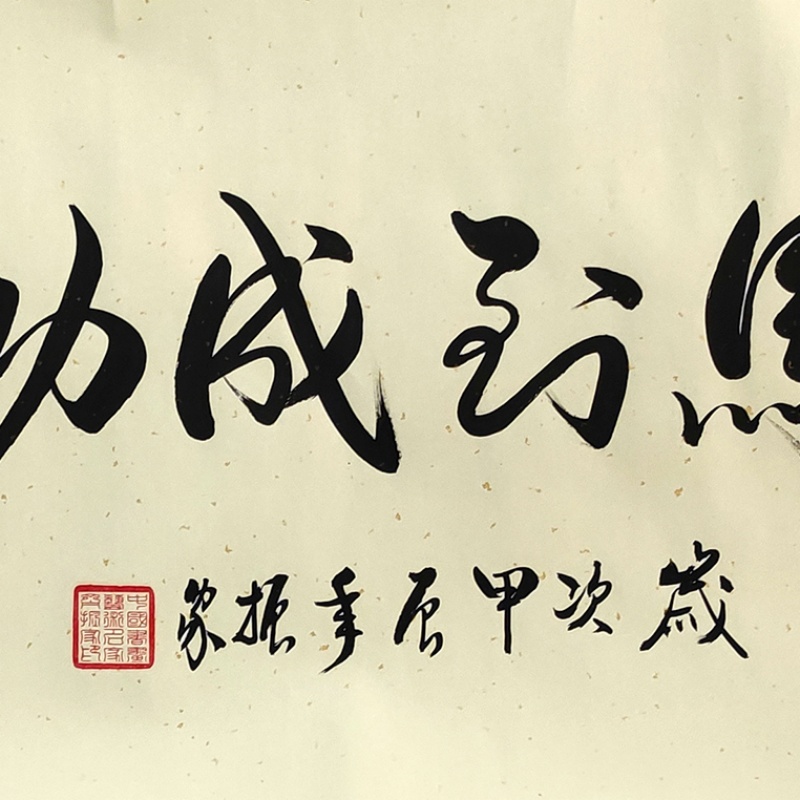 馬到成功
歲次甲辰年振家
中國書畫
藝術名家
振家印